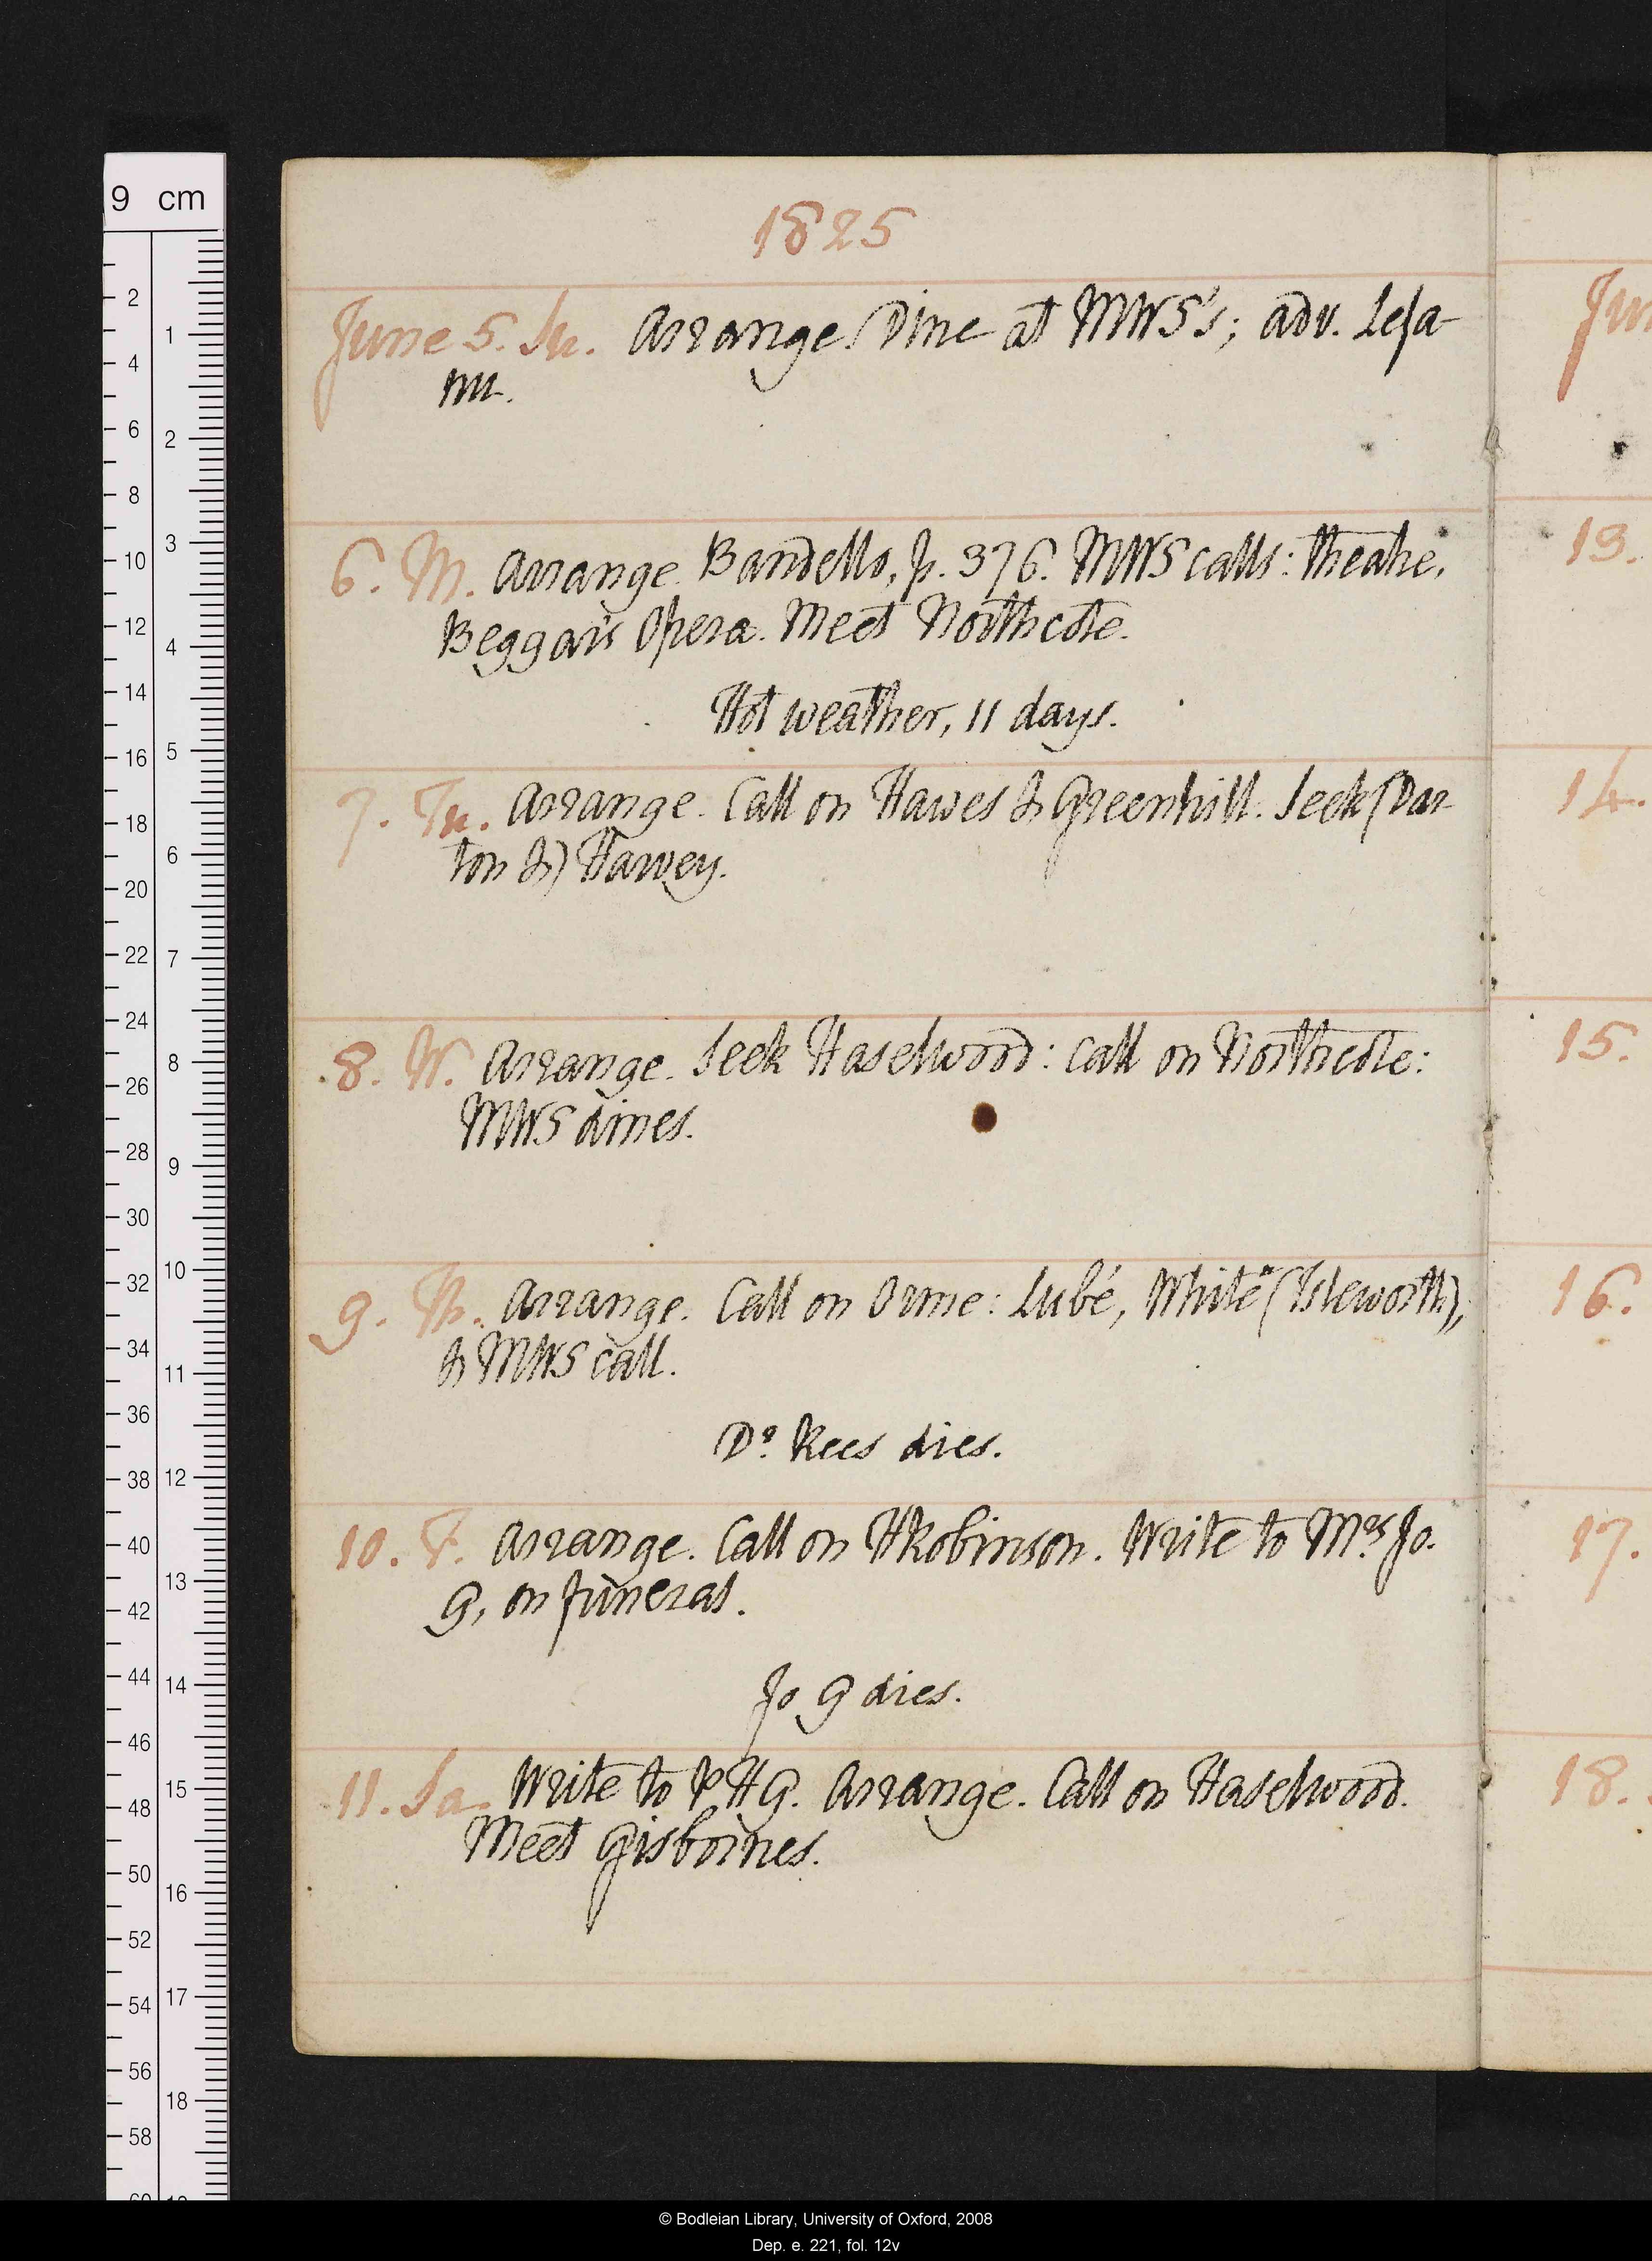 1825
June 5. Su. Arrange. Dine at MWS's; adv. Lefa-
nu.
6. M. Arrange. Bandello, p. 376. MWS calls: theatre,
Beggar's Opera. Meet Northcote.
Hot weather, 11 days.
7. Tu. Arrange. Call on Hawes & Greenhill. Seek (Dar-
ton &) Harvey.
8. W. Arrange. Seek Haselwood: call on Northcote:
MWS dines.
9. Th. Arrange. Call on Orme: Lubé, White* (Isleworth),
& MWS call.
Dr. Rees dies.
10. F. Arrange. Call on HRobinson. Write to Mrs Jo.
G, on funeral.
Jo G dies.
11. Sa. Write to PHG. Arrange. Call on Haselwood.
Meet Gisbornes.
Jun
13.
14.
15.
16.
17.
18.
9 cm
2
4
6
8
10
12
14
16
18
20
22
24
26
28
30
32
34
36
38
40
42
44
46
48
50
52
54
56
58
1
2
3
4
5
6
7
8
9
10
11
12
13
14
15
16
17
18
© Bodleian Library, University of Oxford, 2008
Dep. e. 221, fol. 12v